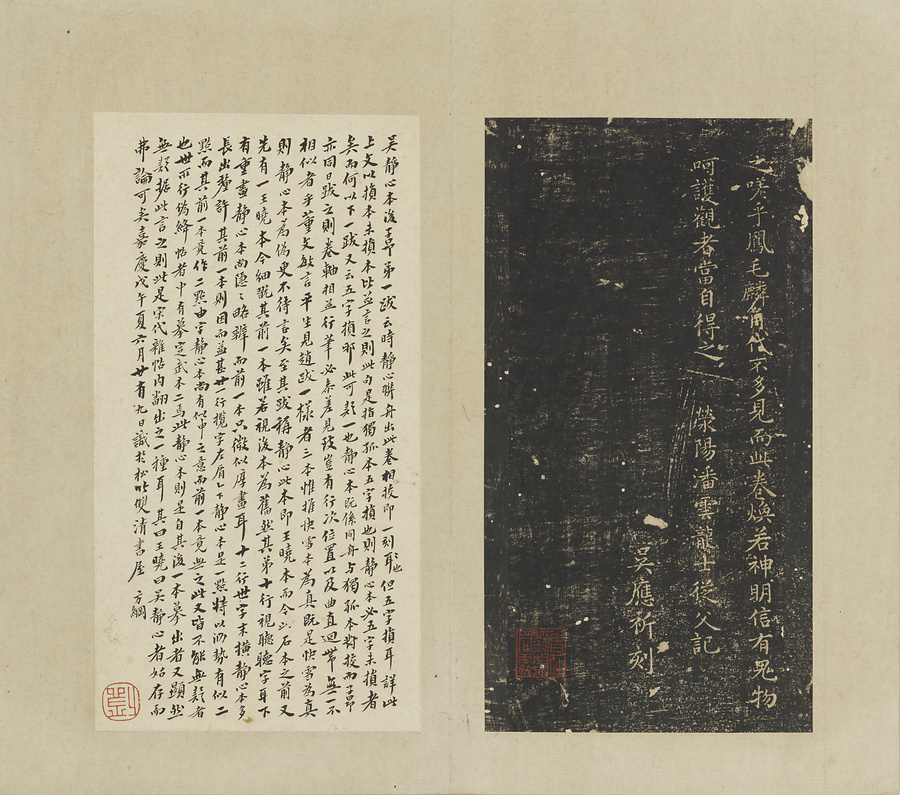 之喙乎鳳毛麟角代不多見而此卷煥若神明信有鬼物
呵護觀者當自得之
滎陽潘雲龍士從父記
吳應祈刻
吳靜心本後子昂第一跋云時靜心聯舟出此卷相校即一刻耳也但五字損耳詳此
上文以損本未損本比並言之則此句是指獨孤本五字損也則靜心本必五字未損者
矣而何以下一跋又云五字損邪此可疑一也靜心本既係同舟與獨孤本對校而子昂
亦同日跋之則卷軸相並行筆必參差見致豈有行次位置以及曲直迴帶無一不
相似者乎董文敏言平生見趙跋一樣者三本惟推快雪本為真既是快雪為真
則靜心本為偽更不待言矣至其跋稱靜心此本即王曉本而今此石本之前又
先有一王曉本今細翫其前一本雖若視後本為舊然其第十行視聽聽字耳下
有重畫靜心本尚隱隱略辨而前一本只微似厚畫耳十二行世字末橫靜心本多
長出釐許其前一本則因而益甚廿一行攬字左肩上下靜心本是一點特以泐勢有似二
點而其前一本竟作二點由字靜心本尚有似申之意而前一本竟無之此又皆不能無疑者
也世所行偽絳帖者中有摹定武本二焉此靜心本則是自其後一本摹出者又顯然
無疑據此言之則此是宋代雜帖內翻出之一種耳其曰王曉曰吳靜心者姑存而
弗論可矣嘉慶戊午夏六月廿有九日識於松竹雙清書屋 方綱